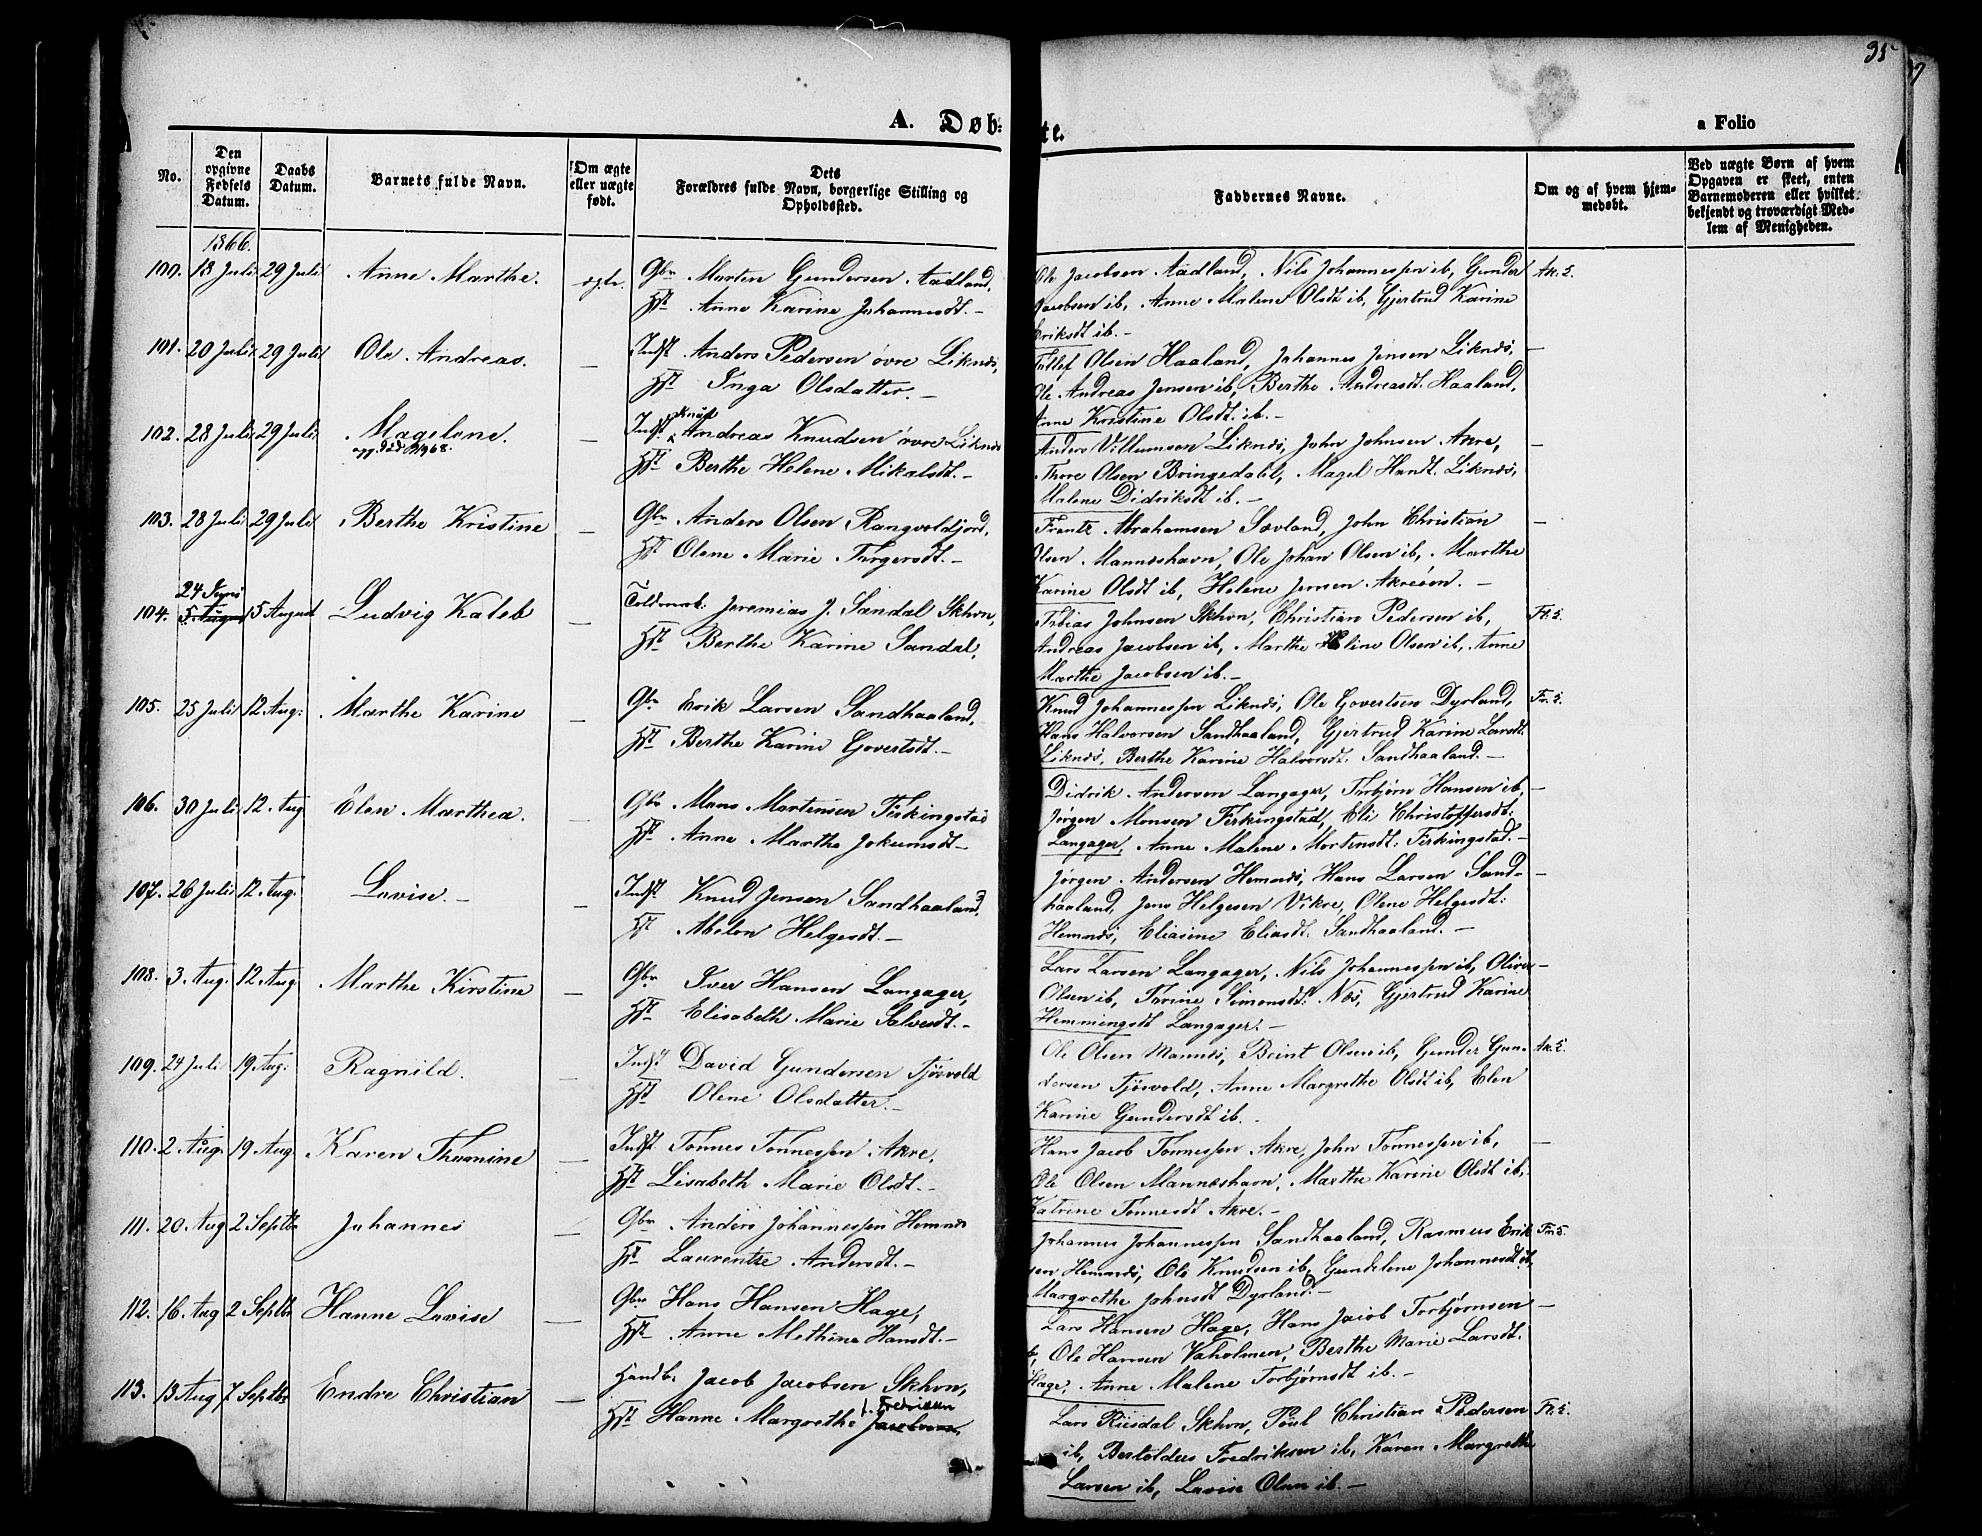 35
A. Døb-
te.
a Folio
No.
Den opgivne Fødsels Datum.
Daabs Datum.
Barnets fulde Navn.
Om ægte eller uægte født.
Dets Forældres fulde Navn, borgerlige Stilling og Opholdssted.
Faddernes Navne.
Om og af hvem hjemmedøbt.
Ved uægte Børn af hvem Opgaven er skeet, enten Barnemoderen eller hvilket bekjendt og troværdigt Medlem af Menigheden.
1866.
100. 18 Juli 29 Juli Anne Marthe. egte. Gbr Morten Gundersen Aadland,
Hst Anne Karine Johannesdt. —
Ole Jacobsen Aadland, Nils Johannessen ib, Gunder Ak. S.
Jacobsen ib, Anne Malene Olsdt ib, Gjertrud Karine
Eriksdt ib. —
101. 20 Juli 29 Juli Ole Andreas. — Indst Anders Pedersen øvre Liknæs,
Hst Inga Olsdatter. —
Tollef Olsen Haaland, Johannes Jensen Liknæs, —
Ole Andreas Jensen ib, Berthe Andreasdt. Haaland,
Anne Kristine Olsdt. ib. —
102. 28 Juli 29 Juli Magelene. — Indst Knud Andreas Knudsen øvre Liknæs
Hst Berthe Helene Mikalsdt. —
Anders Villumsen Liknæs, John Johnsen Akre, —
Thore Olsen Bringedahl, Magel Hansdt. Liknæs,
Malene Didriksdt ib. —
103. 28 Juli 29 Juli Berthe Kristine — Gbr Anders Olsen Rangvoldjord,
Hst Olene Marie Torgersdt. —
Frantz Abrahamsen Sævland, John Christian —
Olsen Manneshavn, Ole Johan Olsen ib, Marthe
Karine Olsdt ib, Helene Jensen Akreøen. —
24 Juni
104. 5 August 5 August Ludvig Kaleb — Toldopsb. Jeremias J. Sandal Skhvn,
Hst Berthe Karine Sandal.
Tobias Johnsen Skhvn, Christian Pedersen ib, Ft. S.
Andreas Jacobsen ib, Marthe Heline Olsen ib, Anne
Marthe Jacobsen ib. —
105. 25 Juli 12 Aug: Marthe Karine — Gbr Erik Larsen Sandhaaland,
Hst Berthe Karine Govertsdt. —
Knud Johannessen Liknæs, Ole Govertsen Dyrland, Fr. S.
Hans Halvorsen Sandhaaland, Gjertrud Karine Larsdt.
Liknæs, Berthe Karine Halvorsdt. Sandhaaland. —
106. 30 Juli 12 Aug Elen Marthea. Gbr Mons Mortensen Ferkingstad
Hst Anne Marthe Jokumsdt —
Didrik Andersen Langager, Torbjørn Hansen ib, —
Jørgen Monsen Ferkingstad, Eli Christoffersdt.
Langager, Anne Malene Mortensdt. Ferkingstad. —
107. 26 Juli 12 Aug. Lovise. — — Indst Knud Jensen Sandhaaland,
Hst Abelon Helgesdt. —
Jørgen Andersen Hemnæs, Hans Larsen Sand- —
haaland, Jens Helgesen Vikre, Olene Helgesdt.
Hemnæs, Eliasine Eliasdt. Sandhaaland. —
108. 3. Aug. 12 Aug Marthe Kirstine — Gbr Iver Hansen Langager,
Hst Elisabeth Marie Salvesdt. —
Lars Larsen Langager, Nils Johannessen ib, Oliver —
Olsen ib, Torine Simonsdt. Næs, Gjertrud Karine
Hemmingsdt Langager. —
109. 24 Juli 19 Aug. Ragnild. Indst David Gundersen Tjøsvold
Hst Olene Olsdatter. —
Ole Olsen Mannes, Beint Olsen ib, Gunder Gun- Ak. S.
dersen Tjøsvold, Anne Margrethe Olsdt ib, Elen
Karine Gundersdt ib. —
110. 2 Aug. 19 Aug Karen Thomine — Indst Tønnes Tønnessen Akre,
Hst Lisabeth Marie Olsdt. —
Hans Jacob Tønnessen Akre, John Tønnessen ib, —
Ole Olsen Manneshavn, Marthe Karine Olsdt ib,
Katrine Tønnesdt Akre. —
111. 20. Aug 2 Septbr Johannes — Gbr Anders Johannessen Hemnæs
Hst Laurentze Andersdt. —
Johannes Johannessen Sandhaaland, Rasmus Erik- Fr. S.
sen Hemnæs, Ole Knudsen ib, Gundelene Johannesdt ib,
Margrethe Johnsdt Dyrland. —
112. 16. Aug 2 Septbr Hanne Lovise — Gbr Hans Hansen Hage,
Hst Anne Mathine Hansdt. —
Lars Hansen Hage, Hans Jacob Torbjørnsen —
ib, Ole Hansen Vaholmen, Berthe Marie Larsdt.
Hage, Anne Malene Torbjørnsdt ib. —
113. 13 Aug 7 Septbr Endre Christian — Handb. Jacob Jacobsen Skhvn,
f. Fredriksen
Hst Hanne Margrethe Jacobsen,
Lars Riisdal Skhvn, Poul Christian Pedersen Ft. S.
ib, Bertoldus Fredriksen ib, Karen Margrethe
Larsen ib, Lovise Olsen ib. —